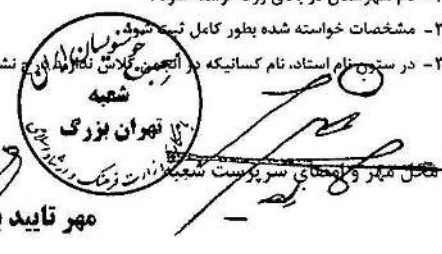 ۲- مشخصات خواسته شده بطور کامل ثبت شود.
۳- در ستون نام استاد، نام کسانیکه در انجمن کلاس ندارند درج نشود
انجمن خوشنویسان ایران
شعبه
تهران بزرگ
وزارت فرهنگ و ارشاد اسلامی
محل مهر و امضای سرپرست شعبه
مهر تایید